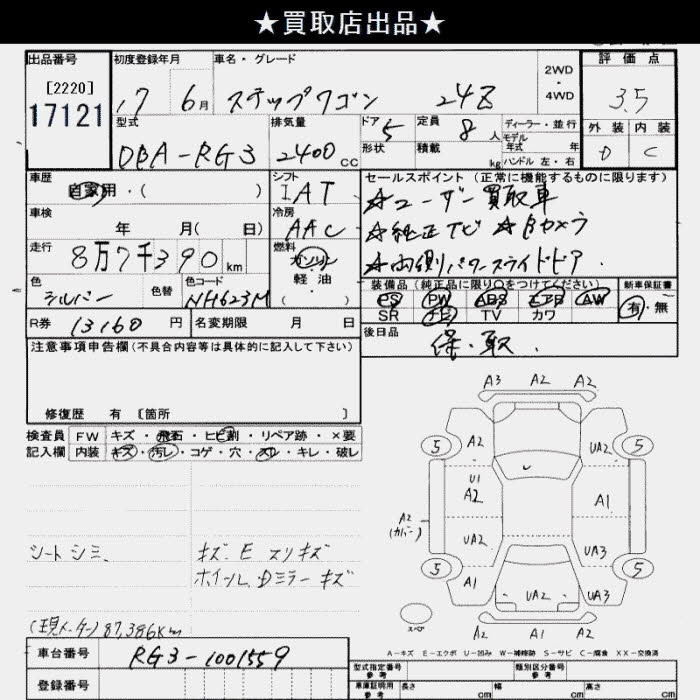 ★買取店出品★
出品番号 初度登録年月 車名・グレード 2WD・4WD 評価点
[2220]
17121
17 6月 ステップワゴン 24Z 3.5
型式 排気量 ドア 定員 ディーラー・並行 外装 内装
DBA-RG3 2400CC 5 8人 モデル年式 年 D C
形状 積載 kg ハンドル 左・右
車歴 シフト セールスポイント(正常に機能するものに限ります)
自家用・( ) IAT ☆ユーザー買取車
車検 冷房
年 月( 日) AAC ☆純正TV ☆Bカメラ
走行 燃料
8万7千390km ガソリン ☆両側パワースライドドア
軽油
( )
色 色替 色コード 装備品(純正品に限り○をつけてください) 新車保証書
シルバー NH623M PS PW ABS エアB AW 有・無
SR ナビ TV カワ
R券 13160円 名変期限 月 日 後日品
保・取.
注意事項申告欄(不具合内容等は具体的に記入して下さい)
修復歴 有 [箇所 ]
検査員 FW キズ・飛石・ヒビ割・リペア跡・×要
記入欄 内装 キズ・汚レ・コゲ・穴・スレ・キレ・破レ
シートシミ、 キズ. E スリキズ
ホイール、Dミラー キズ
(現メーター) 87,386Km
A3 A2 A2
5 A2 UA2 5
U1
A2 A1
A2
(カバー)
UA2 UA3
5 A1 UA2 UA3 5
スペア A2 A1 A2
A-キズ E-エクボ U-凹み W-補修跡 S-サビ C-腐食 XX-交換済
車台番号 RG3-1001559
登録番号
型式指定番号 参考 類別区分番号 参考
車庫証明用 参考 長さ cm 幅 cm 高さ cm